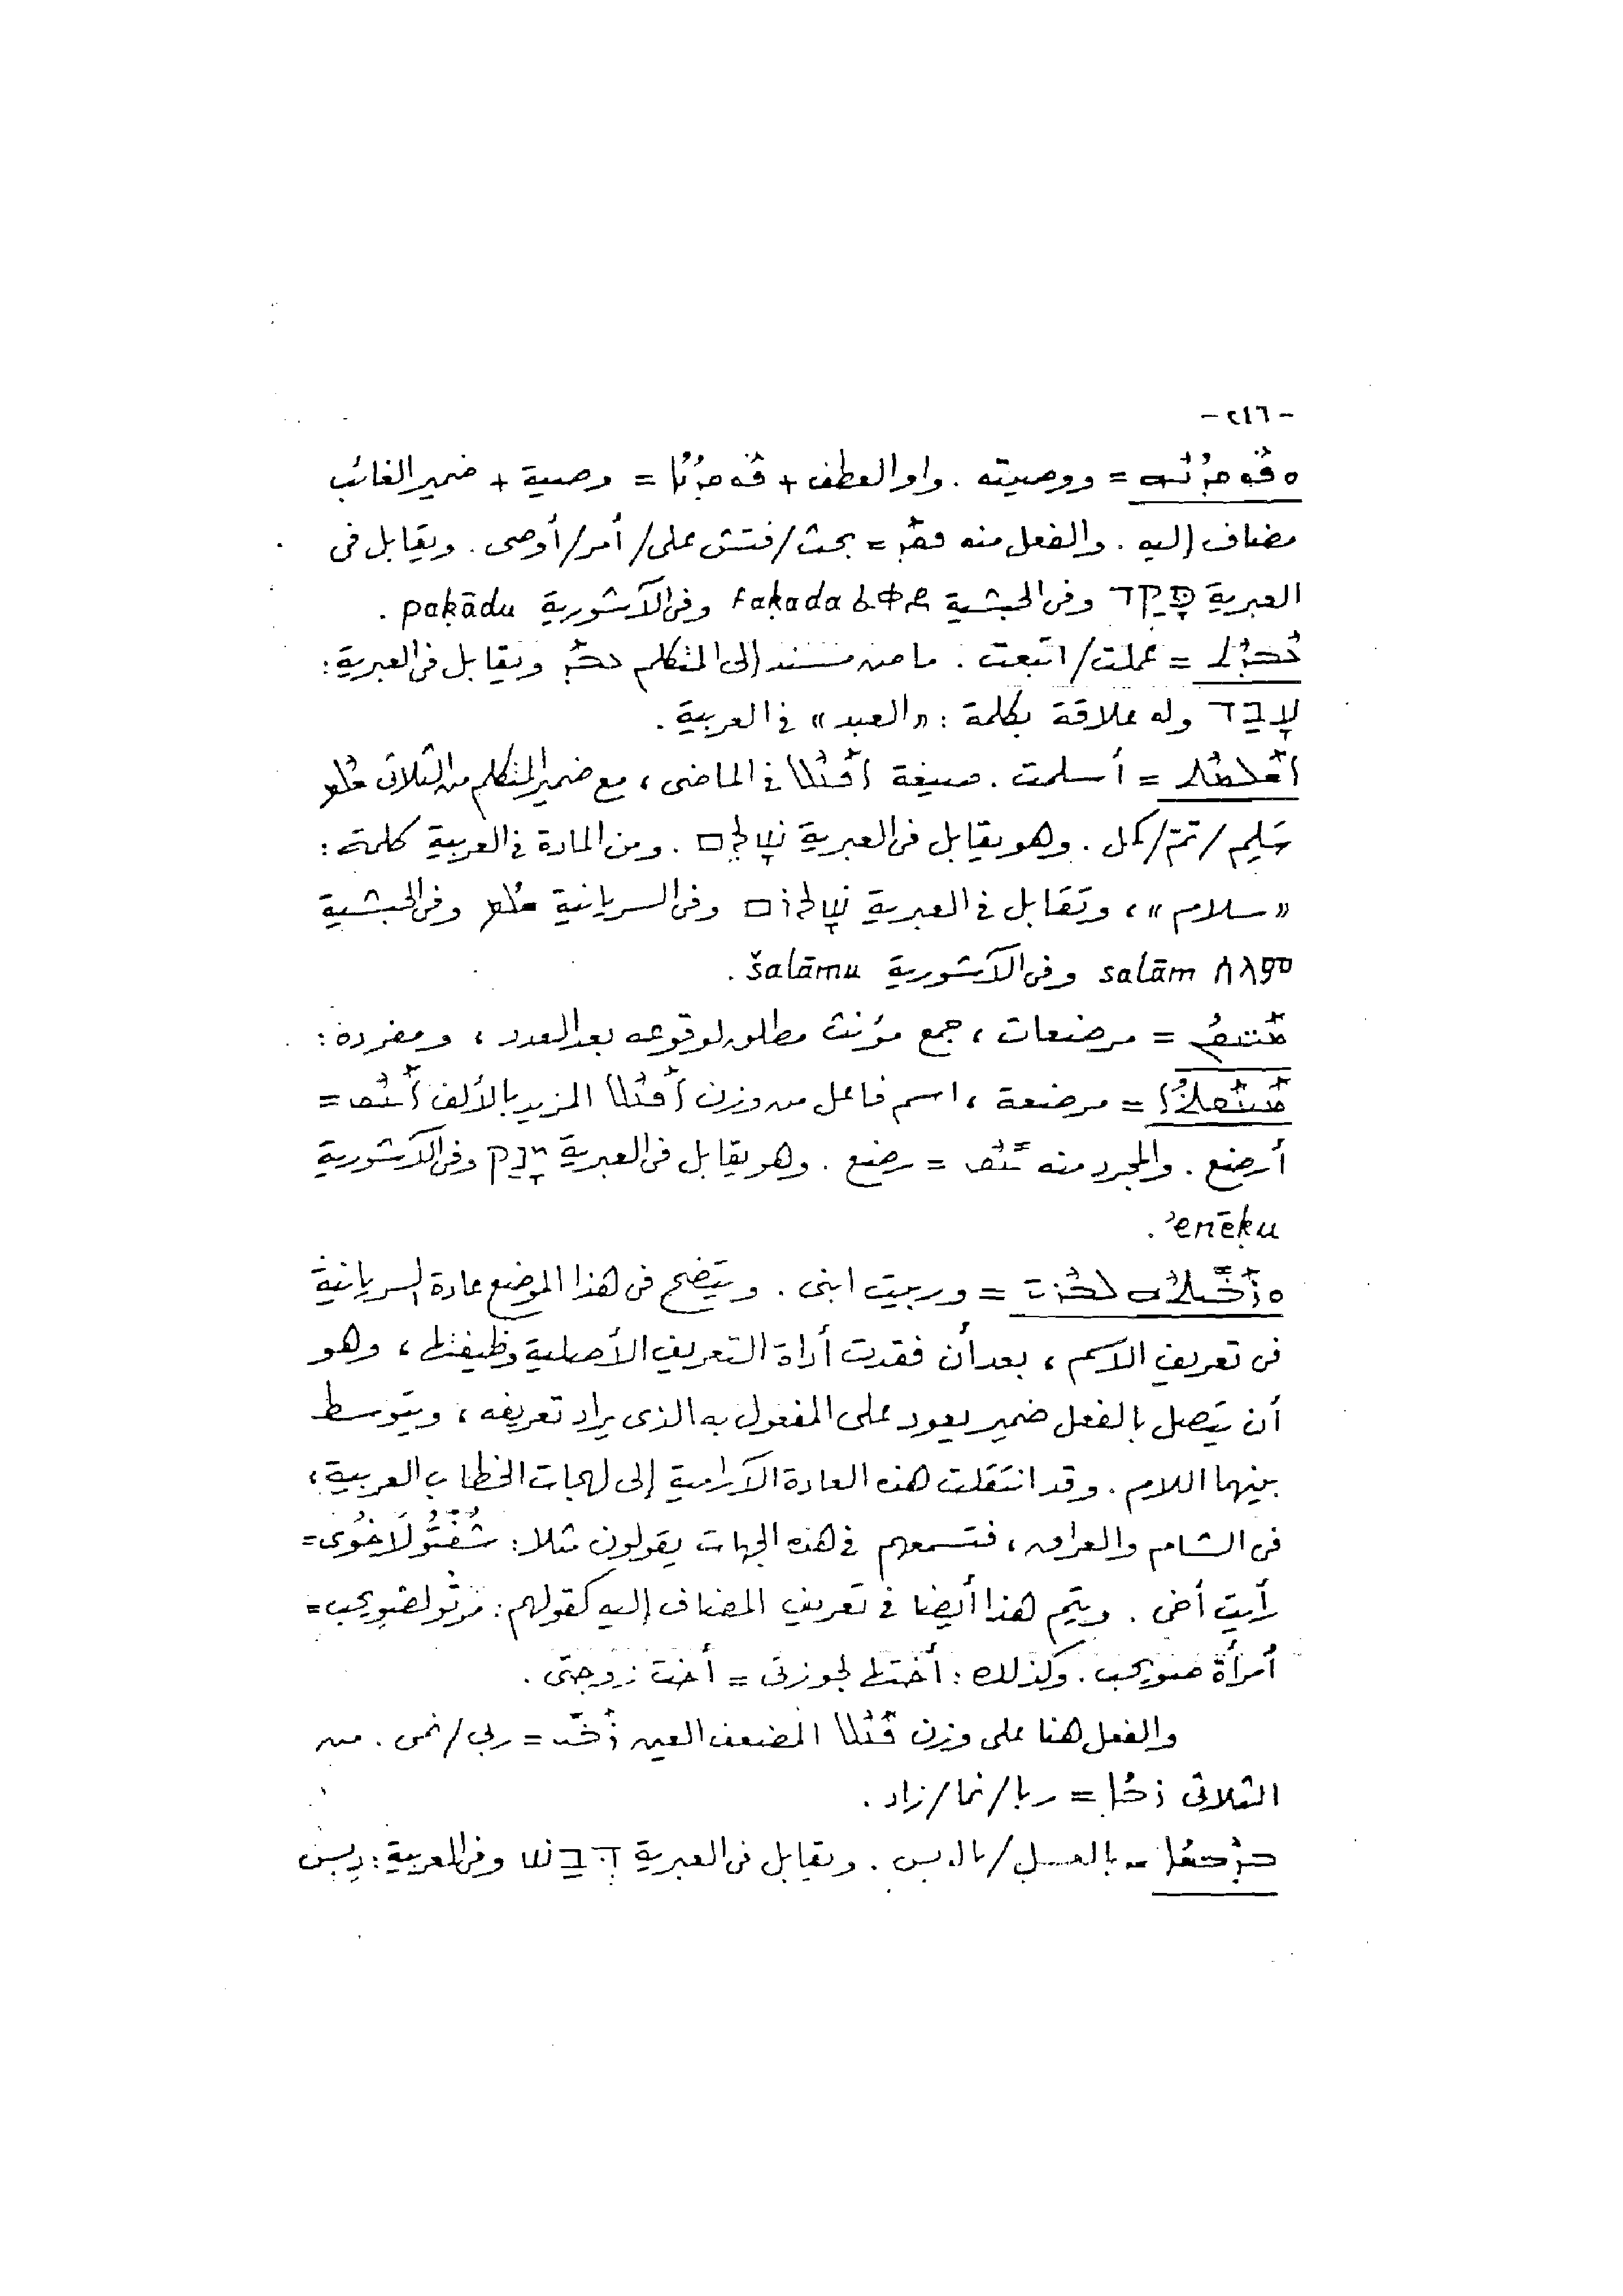 - ٢٤٦ -
ܘܦܘܩܕܢܗ = ووصيته . واو العطف + ܦܘܩܕܢܐ = وصية + ضمير الغائب
مضاف إليه . والفعل منه ܦܩܕ = بحث/فتش على/أمر/أوصى . ويقابل فى
العبرية פָּקַד وفى الحبشية ፈቀደ faḳada وفى الآشورية paḳādu .
ܥܒܕܬ = عملت/اتبعت . ماض مسند إلى المتكلم ܥܒܕ ويقابل فى العبرية :
עָבַד وله علاقة بكلمة : «العبد» فى العربية .
ܐܫܠܡܬ = أسلمت . صيغة ܐܦܥܠ فى الماضى ، مع ضمير المتكلم من الثلاثى ܫܠܡ
سَلِيم/تمّ/كمل . وهو يقابل فى العبرية שָׁלֵם . ومن المادة فى العربية كلمة :
«سلام» ، وتقابل فى العبرية שָׁלוֹם وفى السريانية ܫܠܡ وفى الحبشية
ሰላም salām وفى الآشورية šalāmu .
ܡܝܢܩܢ = مرضعات ، جمع مؤنث مطلق لوقوعه بعد العدد ، ومفرده :
ܡܝܢܩܬܐ = مرضعة ، اسم فاعل من وزن ܐܦܥܠ المزيد بالألف ܐܝܢܩ =
أرضع . والمجرد منه ܝܢܩ = رضع . وهو يقابل فى العبرية יָנַק وفى الآشورية
ʾenēḳu .
ܘܪܒܝܬܗ ܠܒܪܝ = وربيت ابنى . ويتضح فى هذا الموضع عادة السريانية
فى تعريف الاسم ، بعد أن فقدت أداة التعريف الأصلية وظيفتها ، وهو
أن يتصل بالفعل ضمير يعود على المفعول به الذى يراد تعريفه ، ويتوسط
بينهما اللام . وقد انتقلت هذه العادة الآرامية إلى لهجات الخطاب العربية ،
فى الشام والعراق ، فتسمعهم فى هذه الجهات يقولون مثلا : شُفْتُو لَاخُوى =
رأيت أخى . ويتم هذا أيضا فى تعريف المضاف إليه كقولهم : مرتو لضويحى =
أمرأة ضويحى . وكذلك : أختها لجوزتى = أخت زوجتى .
والفعل هنا على وزن ܦܥܠ المضعف العين ܪܒܝ = ربى/نمى . من
الثلاثى ܪܒܐ = ربا/نما/زاد .
ܒܕܒܫܐ = بالعسل/بالدبس . ويقابل فى العبرية דְּבַשׁ وفى العربية : دبس